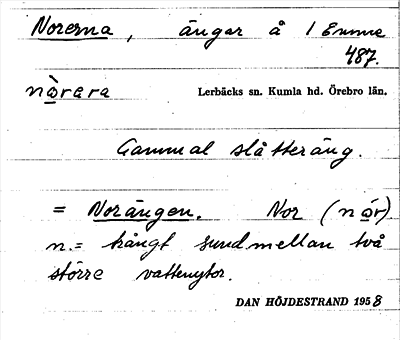 Norerna, ängar å 1 Emme
487.
nòrara Lerbäcks sn. Kumla hd. Örebro län.
Gammal slåtteräng.
= Norängen. Nor (nòr)
n. = trångt sund mellan två
större vattenytor.
DAN HÖJDESTRAND 1958